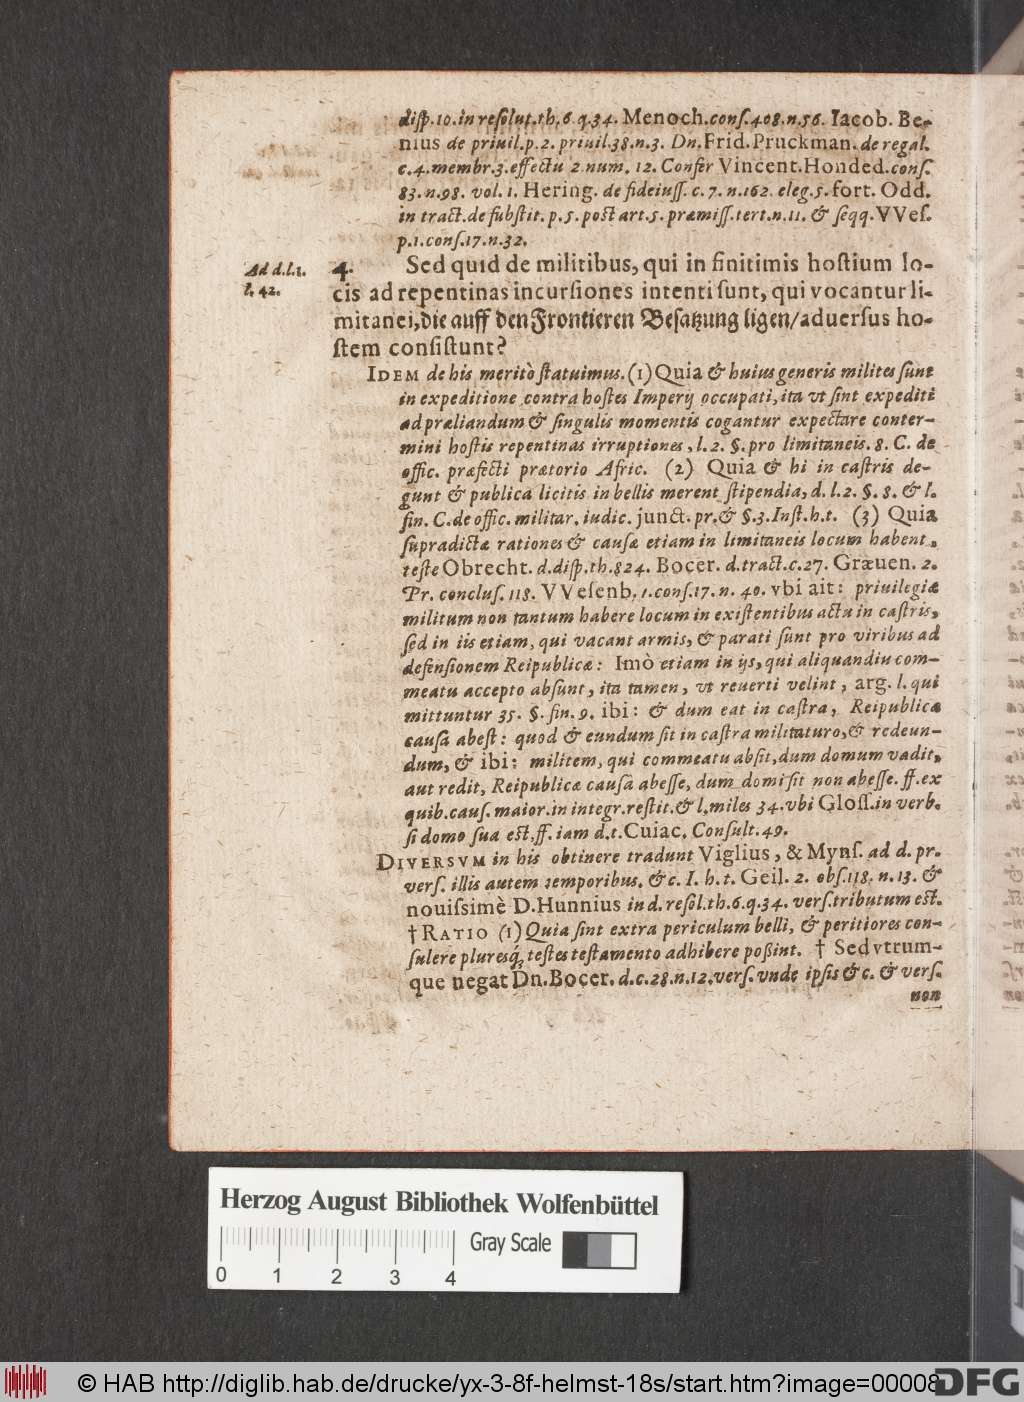 diſp. 10. in reſolut. th. 6. q. 34. Menoch. conſ. 408. n. 56. Iacob. Be-
nius de priuil. p. 2. priuil. 38. n. 3. Dn. Frid. Pruckman. de regal.
c. 4. membr. 3. effectu 2 num. 12. Confer Vincent. Honded. conſ.
83. n. 98. vol. 1. Hering. de fideiuſſ. c. 7. n. 162. eleg. 5. fort. Odd.
in tract. de ſubſtit. p. 5. poſt art. 5. præmiſſ. tert. n. 11. & ſeqq. VVeſ.
p. 1. conſ. 17. n. 32.
Ad d. l. 1.
t. 42.
4. Sed quid de militibus, qui in finitimis hoſtium lo-
cis ad repentinas incurſiones intenti ſunt, qui vocantur li-
mitanei, die auff den Frontieren Beſatzung ligen/ aduerſus ho-
ſtem conſiſtunt?
IDEM de his meritò ſtatuimus. (1) Quia & huius generis milites ſunt
in expeditione contra hoſtes Imperij occupati, ita vt ſint expediti
ad præliandum & ſingulis momentis cogantur expectare conter-
mini hoſtis repentinas irruptiones, l. 2. §. pro limitaneis. 8. C. de
offic. præfecti prætorio Afric. (2) Quia & hi in caſtris de-
gunt & publica licitis in bellis merent ſtipendia, d. l. 2. §. 8. & l.
fin. C. de offic. militar. iudic. junct. pr. & §. 3. Inſt. h. t. (3) Quia
ſupradictæ rationes & cauſæ etiam in limitaneis locum habent,
teſte Obrecht. d. diſp. th. 824. Bocer. d. tract. c. 27. Græuen. 2.
Pr. concluſ. 118. VVeſenb. 1. conſ. 17. n. 40. vbi ait: priuilegia
militum non tantum habere locum in exiſtentibus actu in caſtris,
ſed in iis etiam, qui vacant armis, & parati ſunt pro viribus ad
defenſionem Reipublicæ: Imò etiam in ijs, qui aliquandiu com-
meatu accepto abſunt, ita tamen, vt reuerti velint, arg. l. qui
mittuntur 35. §. fin. 9. ibi: & dum eat in caſtra, Reipublicæ
cauſa abeſt: quod & eundum ſit in caſtra militaturo, & redeun-
dum, & ibi: militem, qui commeatu abſit, dum domum vadit,
aut redit, Reipublicæ cauſa abeſſe, dum domi ſit non abeſſe. ff. ex
quib. cauſ. maior. in integr. reſtit. & l. miles 34. vbi Gloſſ. in verb.
ſi domo ſua eſt. ff. iam d. t. Cuiac. Conſult. 49.
DIVERSVM in his obtinere tradunt Viglius, & Mynſ. ad d. pr.
verſ. illis autem temporibus. & c. I. h. t. Geil. 2. obſ. 118. n. 13. &
nouiſsimè D. Hunnius in d. reſol. th. 6. q. 34. verſ. tributum eſt.
† RATIO (1) Quia ſint extra periculum belli, & peritiores con-
ſulere plureſq́; teſtes teſtamento adhibere poßint. † Sed vtrum-
que negat Dn. Bocer. d. c. 28. n. 12. verſ. vnde ipſis & c. & verſ.
non
Herzog August Bibliothek Wolfenbüttel
Gray Scale
0 1 2 3 4
© HAB http://diglib.hab.de/drucke/yx-3-8f-helmst-18s/start.htm?image=00008
DFG